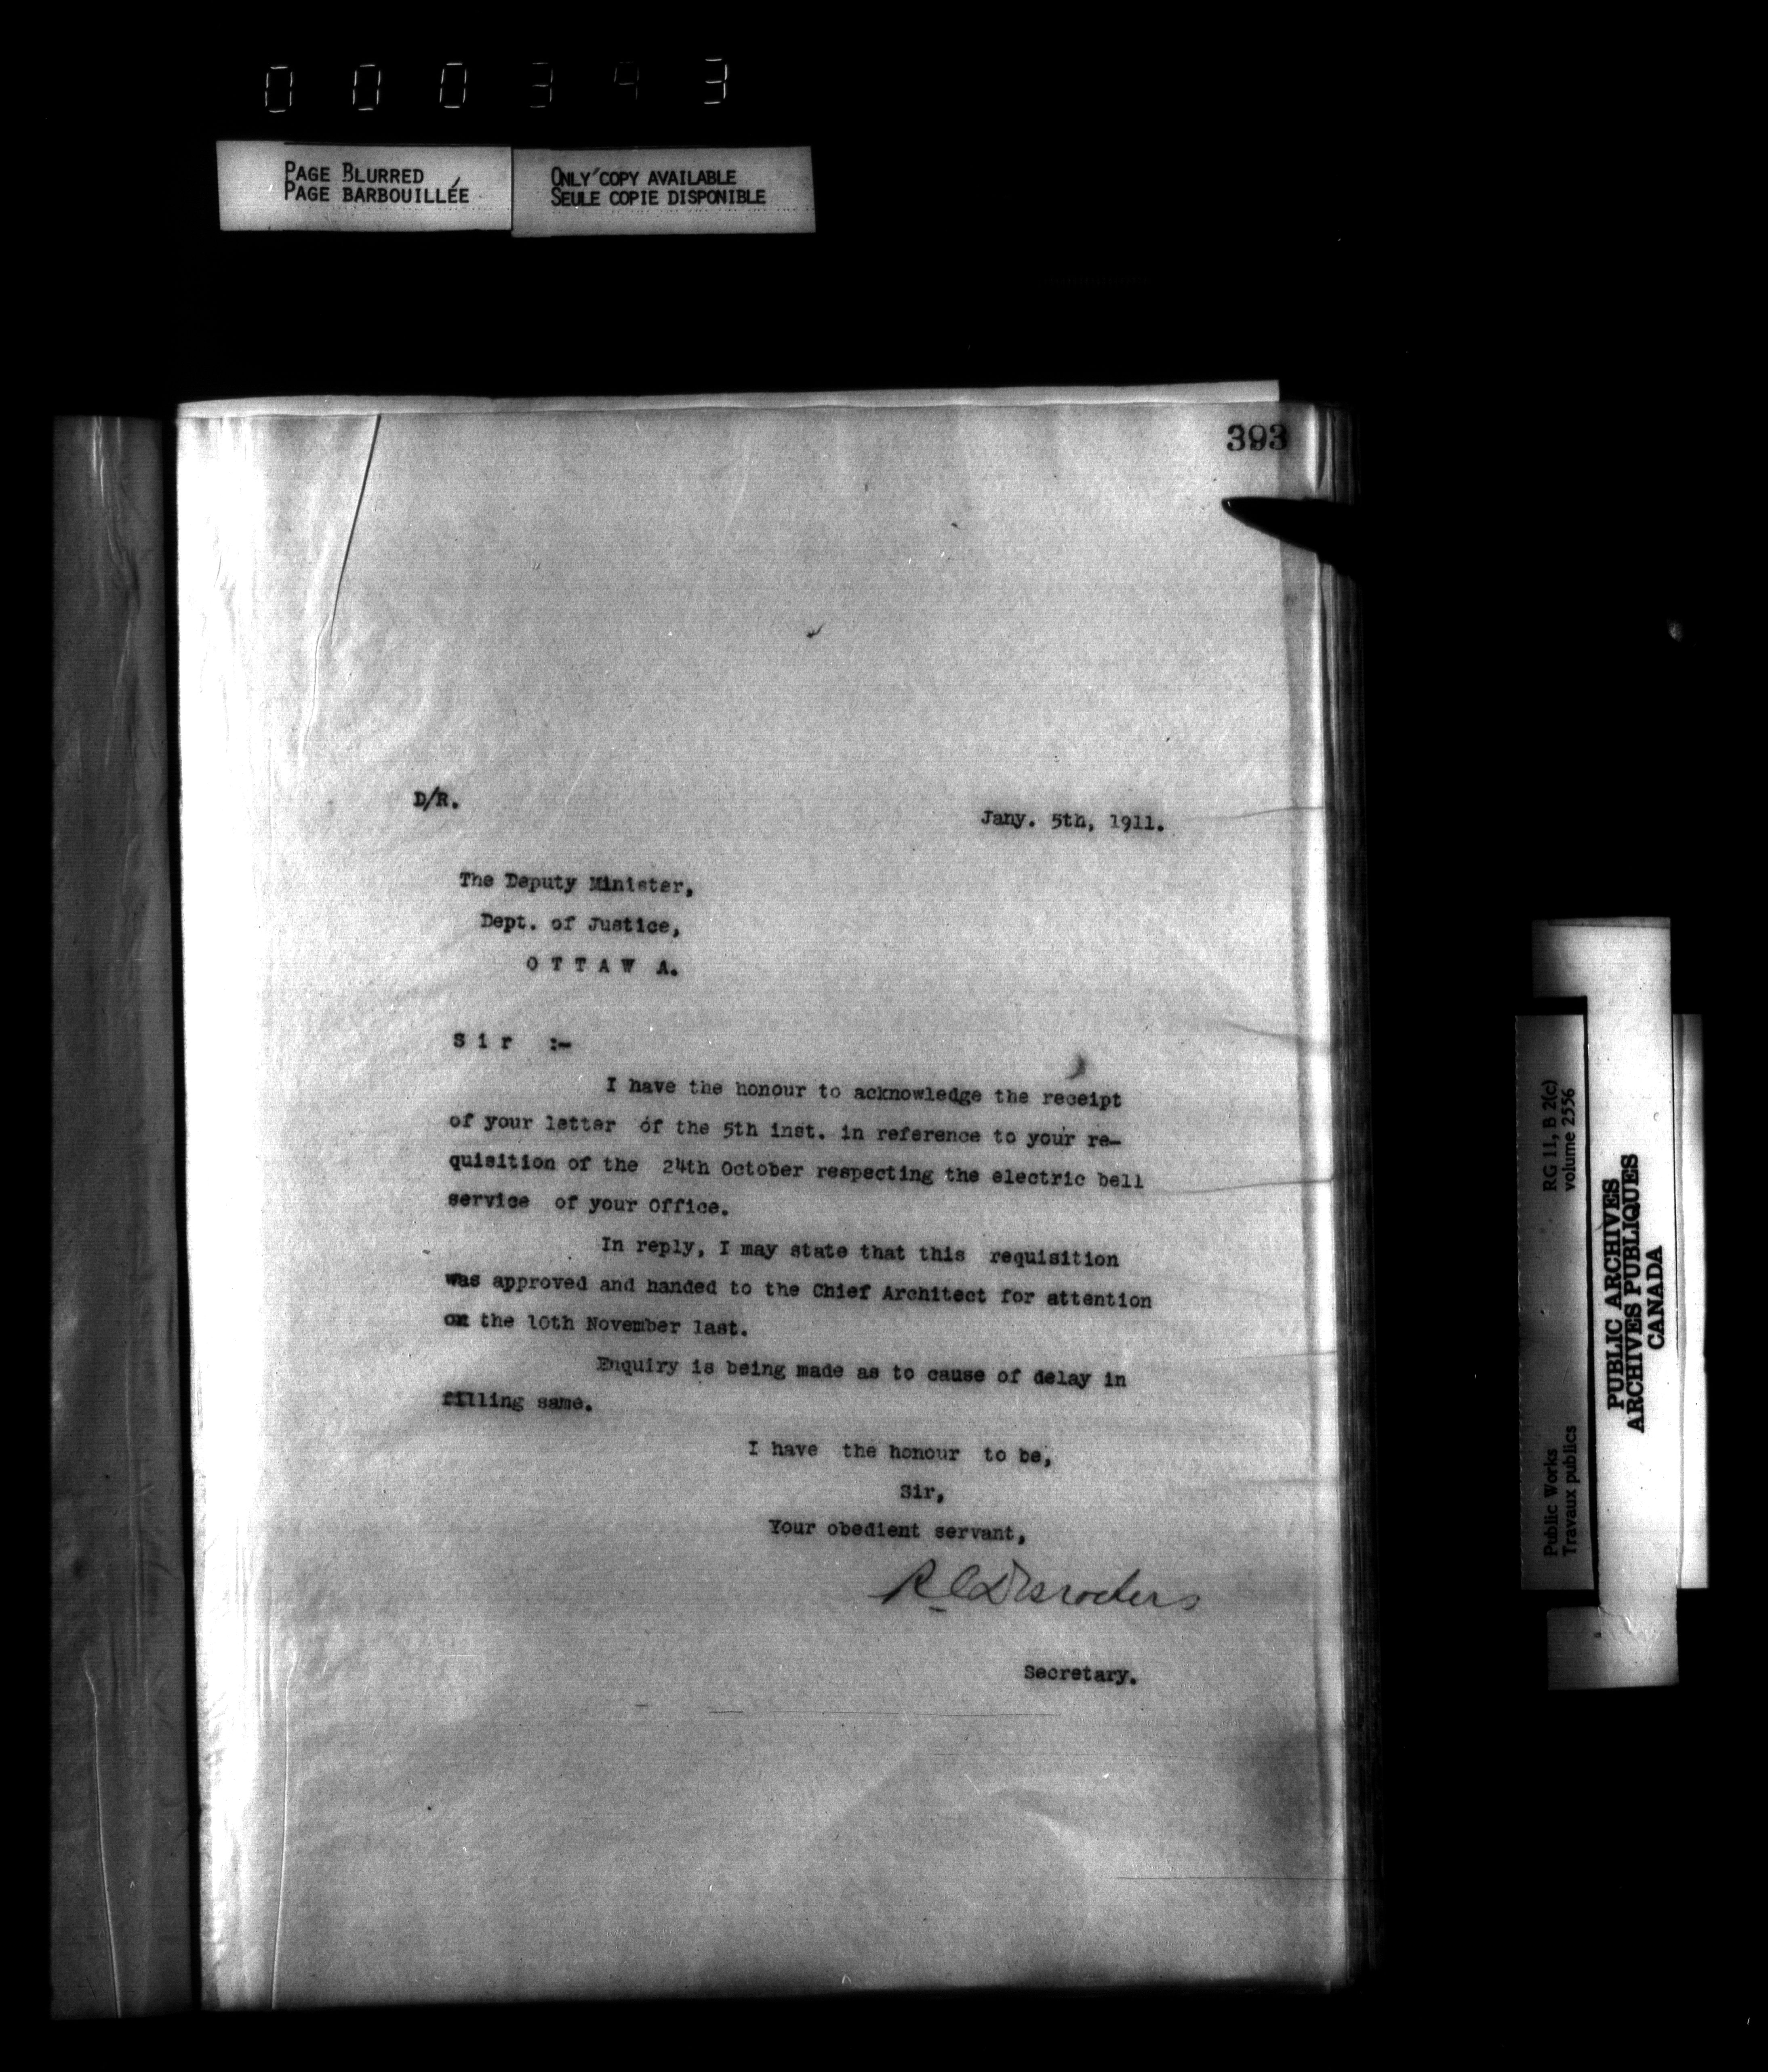 000393
PAGE BLURRED
PAGE BARBOUILLÉE
ONLY COPY AVAILABLE
SEULE COPIE DISPONIBLE
393
D/R.
Jany. 5th, 1911.
The Deputy Minister,
Dept. of Justice,
O T T A W A.
S i r :-
I have the honour to acknowledge the receipt
of your letter of the 5th inst. in reference to your re-
quisition of the 24th October respecting the electric bell
service of your Office.
In reply, I may state that this requisition
was approved and handed to the Chief Architect for attention
on the 10th November last.
Enquiry is being made as to cause of delay in
filling same.
I have the honour to be,
Sir,
Your obedient servant,
R C Desrochers
Secretary.
Public Works
Travaux publics
RG 11, B 2(c)
volume 2556
PUBLIC ARCHIVES
ARCHIVES PUBLIQUES
CANADA